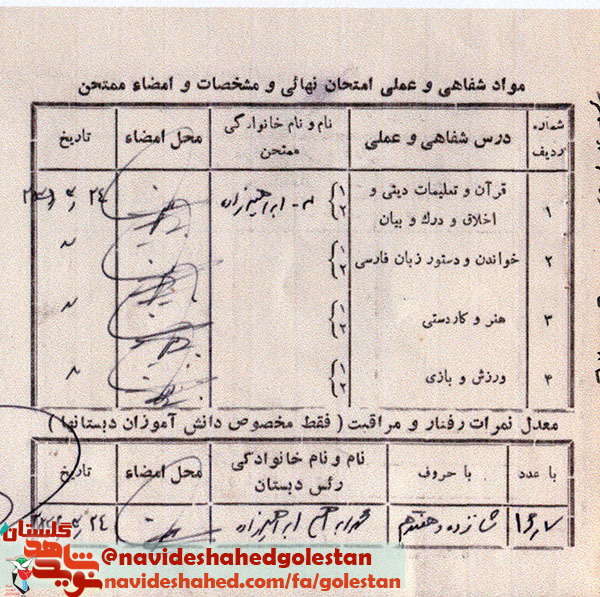 مواد شفاهی و عملی امتحان نهائی و مشخصات و امضاء ممتحن
شماره ردیف درس شفاهی و عملی نام و نام خانوادگی ممتحن محل امضاء تاریخ
۱ قرآن و تعلیمات دینی و اخلاق و درك و بیان ۱ ۲ م- ابراهیم زاده
۲ خواندن و دستور زبان فارسی ۱ ۲ "
۳ هنر و کاردستی ۱ ۲ "
۴ ورزش و بازی ۱ ۲ "
معدل نمرات رفتار و مراقبت ( فقط مخصوص دانش آموزان دبستانها )
با عدد با حروف نام و نام خانوادگی رئس دبستان محل امضاء تاریخ
۱۶٫۷ شانزده و هفتدهم محمد ابراهیم ابراهیم زاده
نوید شاهد گلستان
@navideshahedgolestan
navideshahed.com/fa/golestan